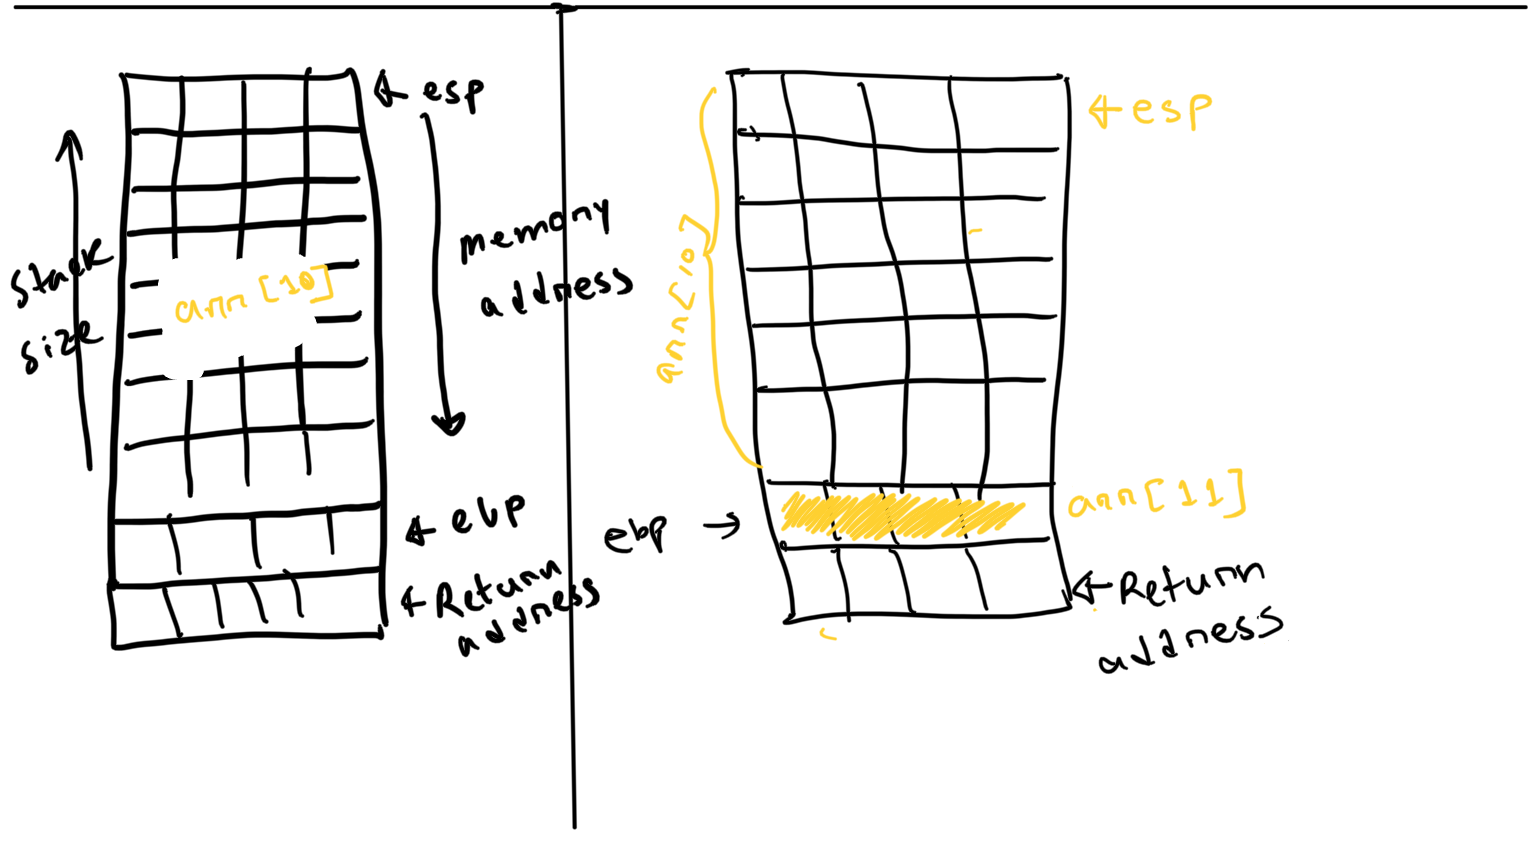 esp
stack
size
memory
address
arr[10]
ebp
Return
address
esp
arr[10]
arr[11]
ebp
Return
address